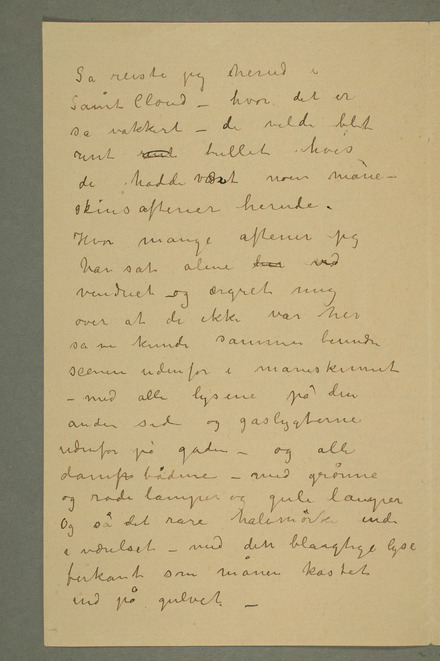 Så reiste jeg herud i
Saint Cloud – hvor det er
så vakkert – de vilde blet
rent tullet hvis
de hadde været noen måne-
skinsaftener herude.
Hvor mange aftener jeg
har sat alene ved
vinduet og ærgret mig
over at de ikke var her
så vi kunde sammen beundre
scenen udenfor i maaneskinnet
– med alle lysene på den
anden side og gaslygterne
udenfor på gaden – og alle
dampbådene – med grønne
og røde lamper og gule lamper
Og så det rare halvmørke inde
i værelset – med den blaaglige lyse
firkant som månen kastet
ind på gulvet –